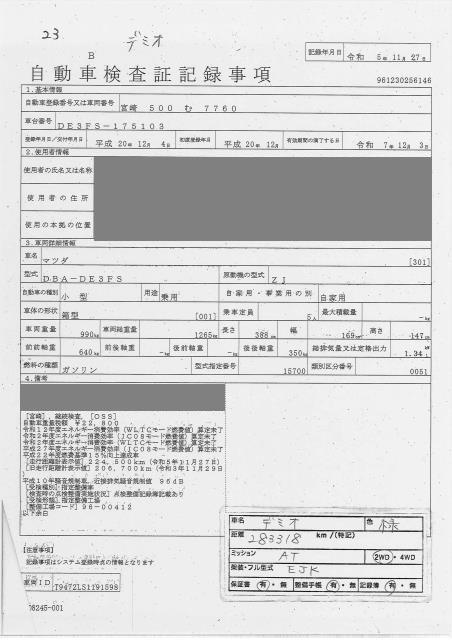 23
デミオ
B
記録年月日 令和 5年 11月 27日
自動車検査証記録事項
961230256146
1.基本情報
自動車登録番号又は車両番号 宮崎 500 む 7760
車台番号 DE3FS-175103
登録年月日/交付年月日 平成 20年 12月 4日 初度登録年月 平成 20年 12月 有効期間の満了する日 令和 7年 12月 3日
2.使用者情報
使用者の氏名又は名称
使用者の住所
使用の本拠の位置
3.車両詳細情報
車名 マツダ [301]
型式 DBA-DE3FS 原動機の型式 ZJ
自動車の種別 小型 用途 乗用 自家用・事業用の別 自家用
車体の形状 箱型 [001] 乗車定員 5人 最大積載量 -kg
車両重量 990kg 車両総重量 1265kg 長さ 388cm 幅 169cm 高さ 147cm
前前軸重 640kg 前後軸重 -kg 後前軸重 -kg 後後軸重 350kg 総排気量又は定格出力 1.34
燃料の種類 ガソリン 型式指定番号 15700 類別区分番号 0051
4.備考
[宮崎], 継続検査, [OSS]
自動車重量税額 ¥22,800
令和12年度エネルギー消費効率(WLTCモード燃費値)算定未了
令和2年度エネルギー消費効率(JC08モード燃費値)算定未了
令和2年度エネルギー消費効率(WLTCモード燃費値)算定未了
平成27年度エネルギー消費効率(JC08モード燃費値)算定未了
平成22年度燃費基準15%向上達成車
[走行距離計表示値] 224,500km(令和5年11月27日)
[旧走行距離計表示値] 206,700km(令和3年11月29日)
平成10年騒音規制車, 近接排気騒音規制値 96dB
[受検種別] 指定整備車
[検査時の点検整備実施状況] 点検整備記録簿記載あり
[受検形態] 指定整備工場
[整備工場コード] 96-00412
以下余白
車名 デミオ 色 緑
距離 283318 km/(特記)
ミッション AT 2WD・4WD
架装・フル型式 EJK
保証書 有・無 整備手帳 有・無 記録簿 有・無
【注意事項】
記録事項はシステム登録時点の情報となります
車両ID T9472LS1191598
08245-001